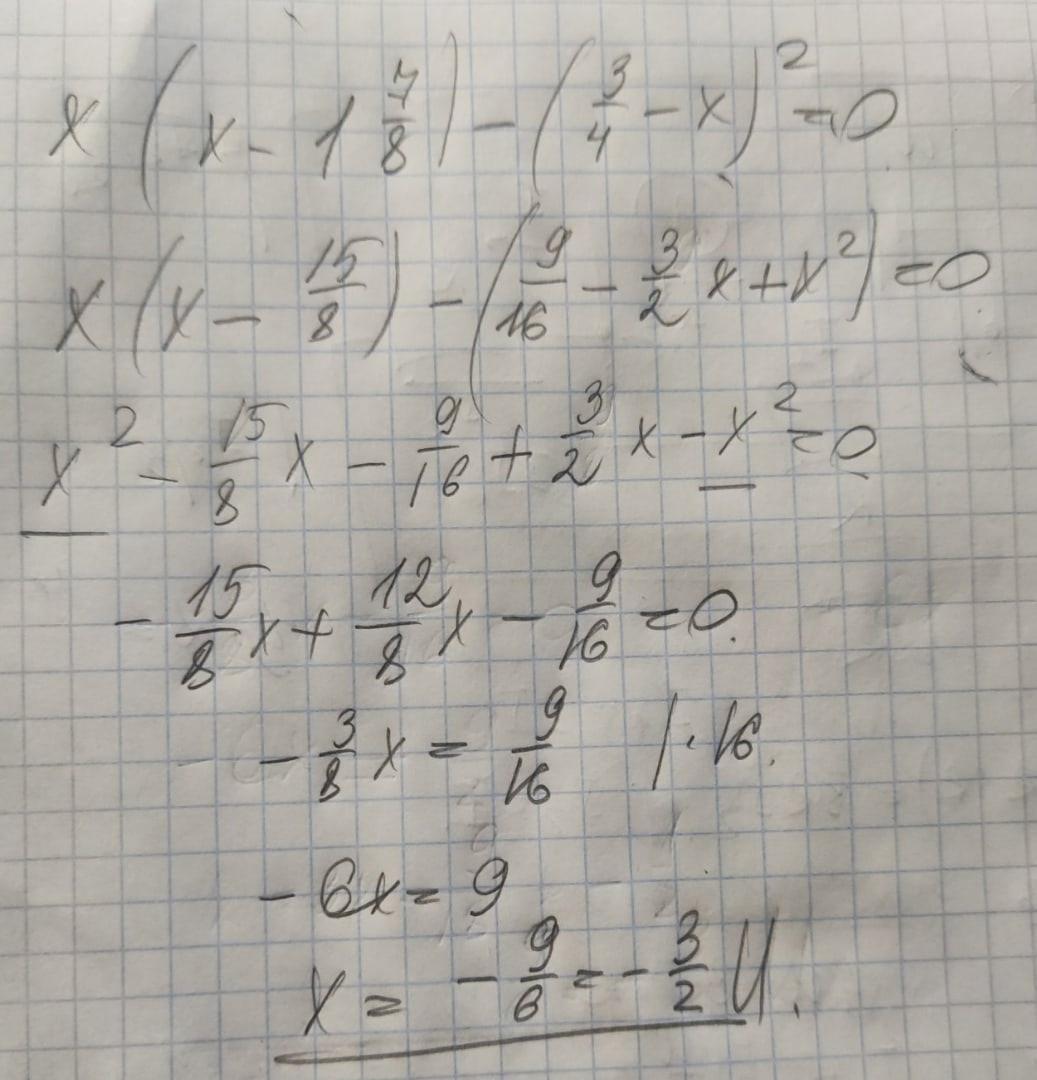 x(x - 1 7/8) - (3/4 - x)² = 0
x(x - 15/8) - (9/16 - 3/2 x + x²) = 0
x² - 15/8 x - 9/16 + 3/2 x - x² = 0
- 15/8 x + 12/8 x - 9/16 = 0.
- 3/8 x = 9/16 | · 16.
- 6x = 9
x = - 9/6 = - 3/2